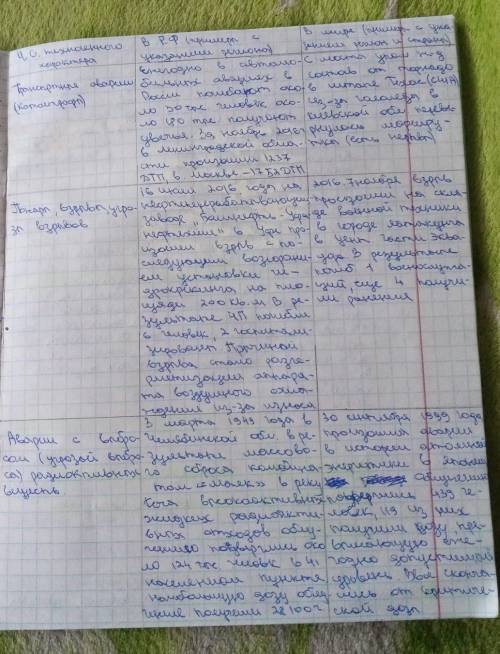 Ч.С. техногенного
характера
В РФ (пример с
указанием региона)
В мире (пример с ука-
занием страны)
Транспортные аварии
(катастрофы)
ежегодно в автомо-
бильных авариях в
России погибают око-
ло 30 тыс человек, око-
ло 180 тыс получают
увечья. За ноябрь 2016г
в ленинградской обла-
сти произошли 1237
ДТП, в Москве - 1752 ДТП
С моста упал ж/д
состав от торнадо
в штате Техас (США)
из-за гололеда в
киевской обл. перевер-
нулась маршру-
тка (есть жертвы)
Пожары, взрывы, угро-
за взрывов
16 июля 2016 года на
нефтеперерабатывающем
заводе "Башнефть - Уфа-
нефтехим" в Уфе про-
изошёл взрыв с по-
следующим возгорани-
ем установки ги-
дрокрекинга на пло-
щади 200 кв. м В ре-
зультате ЧП погибли
6 человек, 2 госпитали-
зированы Причиной
взрыва стала разге-
рметизация аппара-
та воздушного охла-
ждения из-за износа
2016. 7 ноября взрыв
произошел на скла-
де военной техники
в городе Латакунга
в цент. части Эква-
дор В результате
погиб 1 военнослужа-
щий, еще 4 получи-
ли ранения
Аварии с выбро-
сом (угрозой выбро-
са) радиоактивных
веществ
3 марта 1949 года в
Челябинской обл. в ре-
зультате массово-
го сброса комбина-
том «Маяк» в реку
Теча высокоактивных
жидких радиоакти-
вных отходов облу-
чению подверглись око-
ло 124 тыс человек в 41
населенном пункте
наибольшую дозу облу-
чение получили 28 100 ч
30 сентября 1999 года
произошла авария
в истории атомной
энергетики в Японии
облучению
подверглись 439 че-
ловек, 119 из них
получили дозу пре-
вышающую еже-
годно допустимый
уровень. Двое сконча-
лись от критиче-
ской дозы